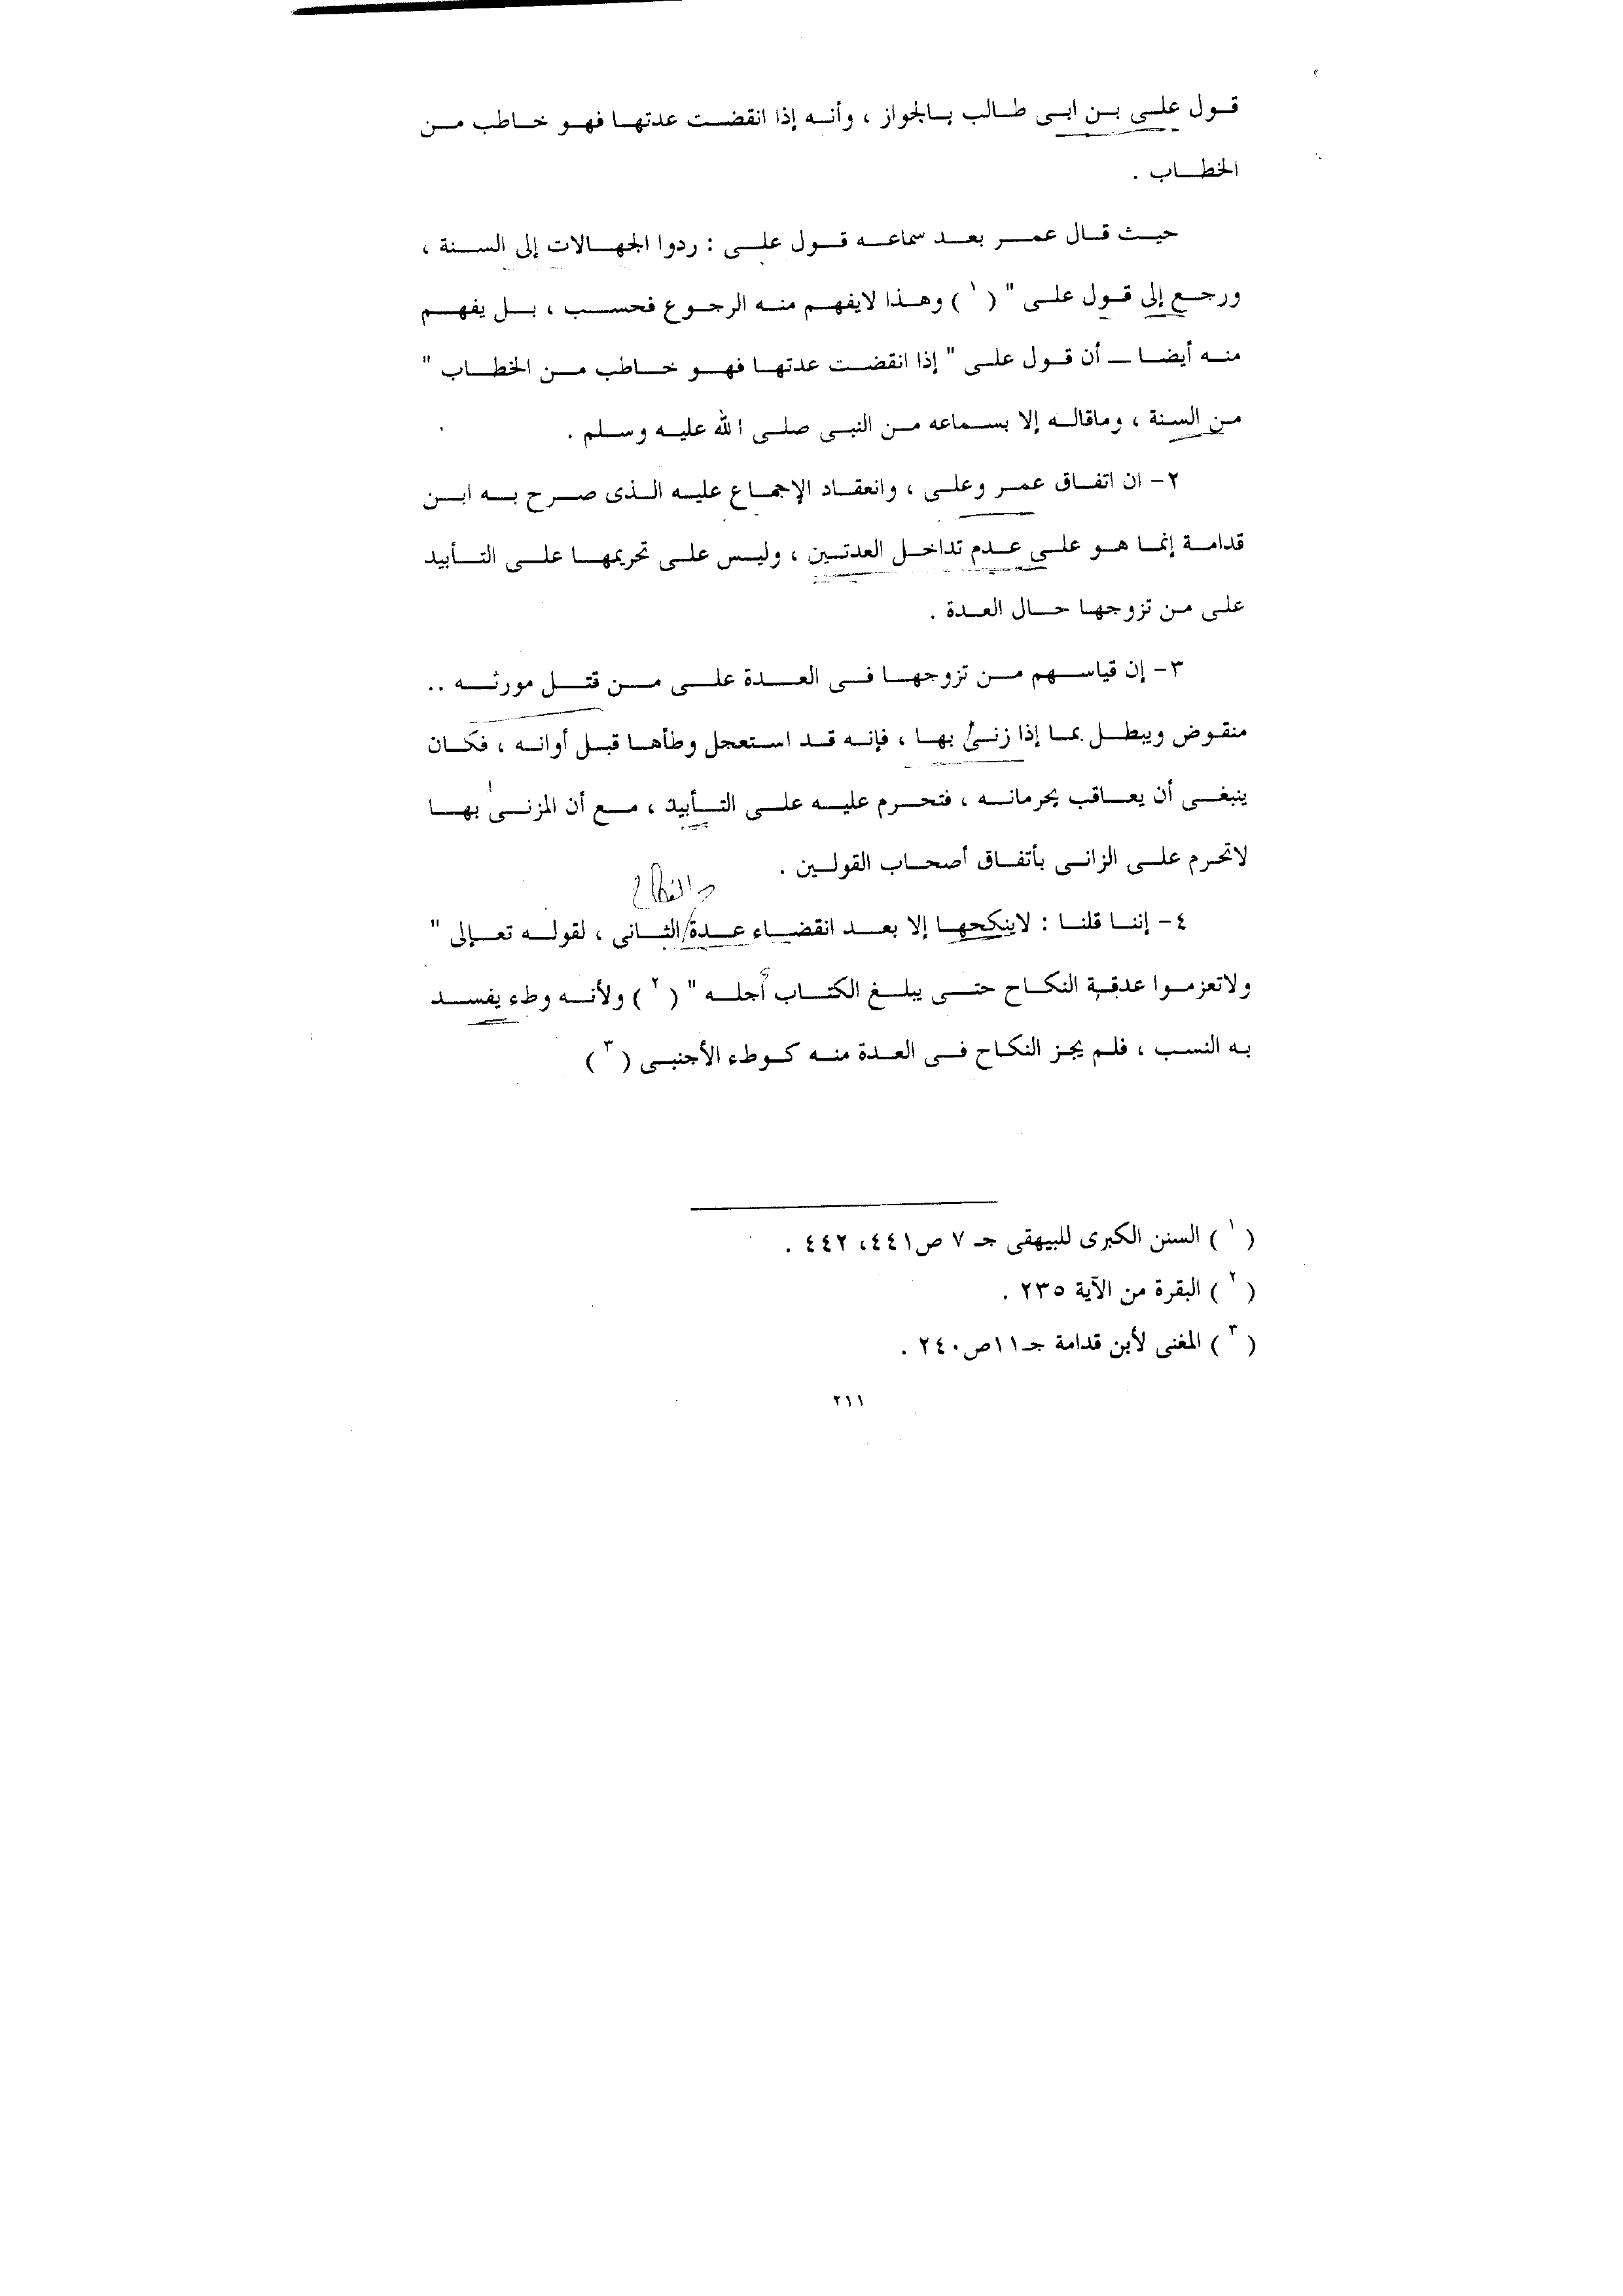 قول على بن ابى طالب بالجواز ، وأنه إذا انقضت عدتها فهو خاطب من
الخطاب .
حيث قال عمر بعد سماعه قول على : ردوا الجهالات إلى السنة ،
ورجع إلى قول على " ( ١ ) وهذا لايفهم منه الرجوع فحسب ، بل يفهم
منه أيضا ـ أن قول على " إذا انقضت عدتها فهو خاطب من الخطاب "
من السنة ، وماقاله إلا بسماعه من النبى صلى الله عليه وسلم .
٢- ان اتفاق عمر وعلى ، وانعقاد الإجماع عليه الذى صرح به ابن
قدامة إنما هو على عدم تداخل العدتين ، وليس على تحريمها على التأبيد
على من تزوجها حال العدة .
٣- إن قياسهم من تزوجها فى العدة على من قتل مورثه ..
منقوض ويبطل بما إذا زنى بها ، فإنه قد استعجل وطأها قبل أوانه ، فكان
ينبغى أن يعاقب بحرمانه ، فتحرم عليه على التأبيد ، مع أن المزنى بها
لاتحرم على الزانى بأتفاق أصحاب القولين .
٤- إننا قلنا : لاينكحها إلا بعد انقضاء عدة الثانى ، لقوله تعالى "
ولاتعزموا عدقة النكاح حتى يبلغ الكتاب أجله " ( ٢ ) ولأنه وطء يفسد
به النسب ، فلم يجز النكاح فى العدة منه كوطء الأجنبى ( ٣ )
( ١ ) السنن الكبرى للبيهقى جـ ٧ ص٤٤١، ٤٤٢ .
( ٢ ) البقرة من الآية ٢٣٥ .
( ٣ ) المغنى لأبن قدامة جـ١١ص٢٤٠ .
٢١١